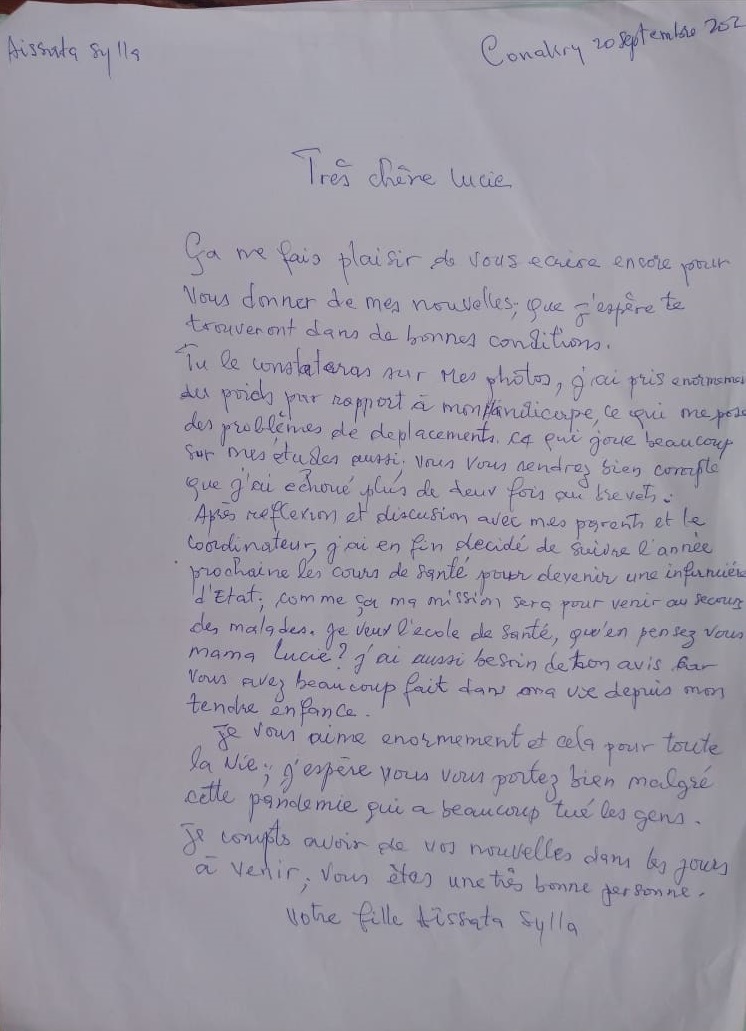 Aissata Sylla
Conakry 20 septembre 202
Très chère Lucie
Ça me fais plaisir de vous ecrire encore pour
Vous donner de mes nouvelles; que j'espère te
trouveront dans de bonnes conditions.
Tu le constateras sur mes photos, j'ai pris enormemen
du poids par rapport à mon handicape, ce qui me pose
des problèmes de deplacements. ça qui joue beaucoup
sur mes études aussi. Vous vous rendrez bien compte
que j'ai echoué plus de deux fois au brevet.
Après reflexion et discusion avec mes parents et le
coordinateur, j'ai en fin decidé de suivre l'année
prochaine les cours de santé pour devenir une infirmière
d'Etat; comme ça ma mission sera pour venir au secours
des malades. Je veux l'ecole de santé, qu'en pensez vous
mama Lucie? j'ai aussi besoin de ton avis car
Vous avez beaucoup fait dans ma vie depuis mon
tendre enfance.
Je vous aime enormement et cela pour toute
la vie; j'espère vous vous portez bien malgré
cette pandemie qui a beaucoup tué les gens.
Je compts avoir de vos nouvelles dans les jours
à venir; Vous êtes une très bonne personne.
Votre fille Aissata Sylla